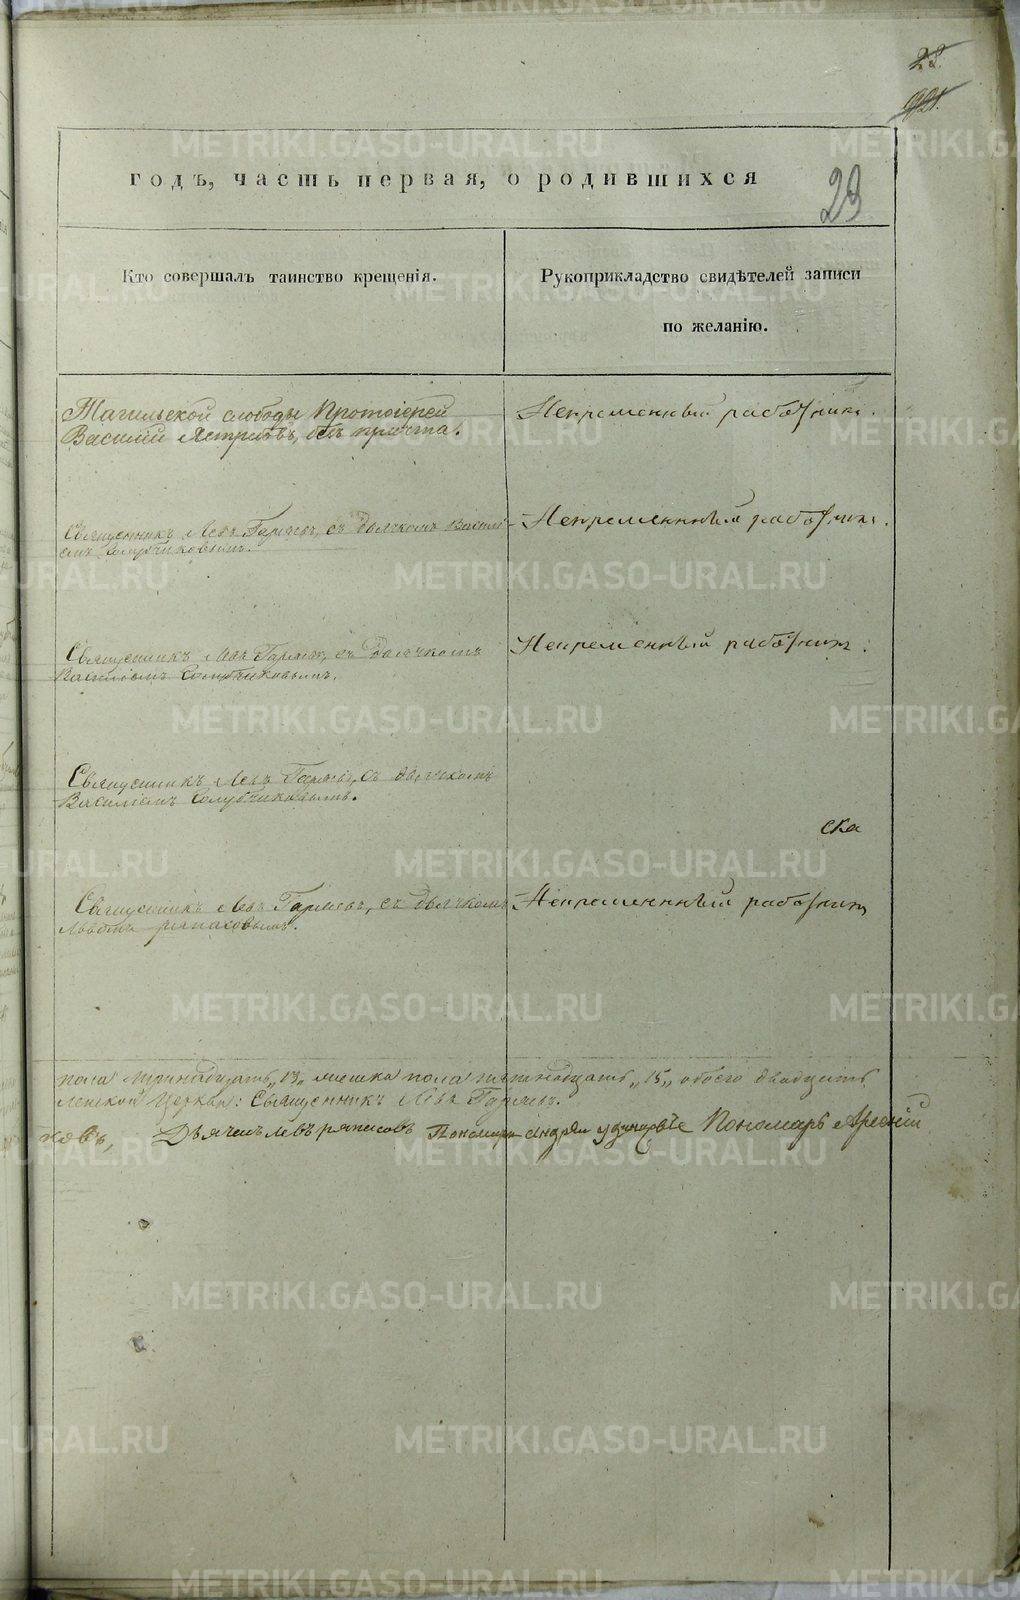 22.
годъ, часть первая, о родившихся
29
Кто совершалъ таинство крещенія.
Рукоприкладство свидѣтелей записи
по желанію.
Тагильской слободы Протоіерей
Василій Ястребовъ, безъ причта.
Непременный работникъ.
Священникъ Левъ Гаряевъ, съ дьячкомъ Василі-
емъ Голубчиковымъ.
Непременный работникъ.
Священникъ Левъ Гаряевъ, съ Дьячкомъ
Василіемъ Голубчиковымъ.
Непременный работникъ.
Священникъ Левъ Гаряевъ, съ дьячкомъ
Василіемъ Голубчиковымъ.
ска
Священникъ Левъ Гаряевъ, съ дьячкомъ
Львомъ
Непременный работникъ
пола тринадцать „13„ женска пола пятнадцать „15„ обоего двадцать
ленской Церкви: Священникъ Левъ Гаряевъ.
ковъ, Дьячекъ Левъ Пономарь Андрей Пономарь Арсеній
METRIKI.GASO-URAL.RU